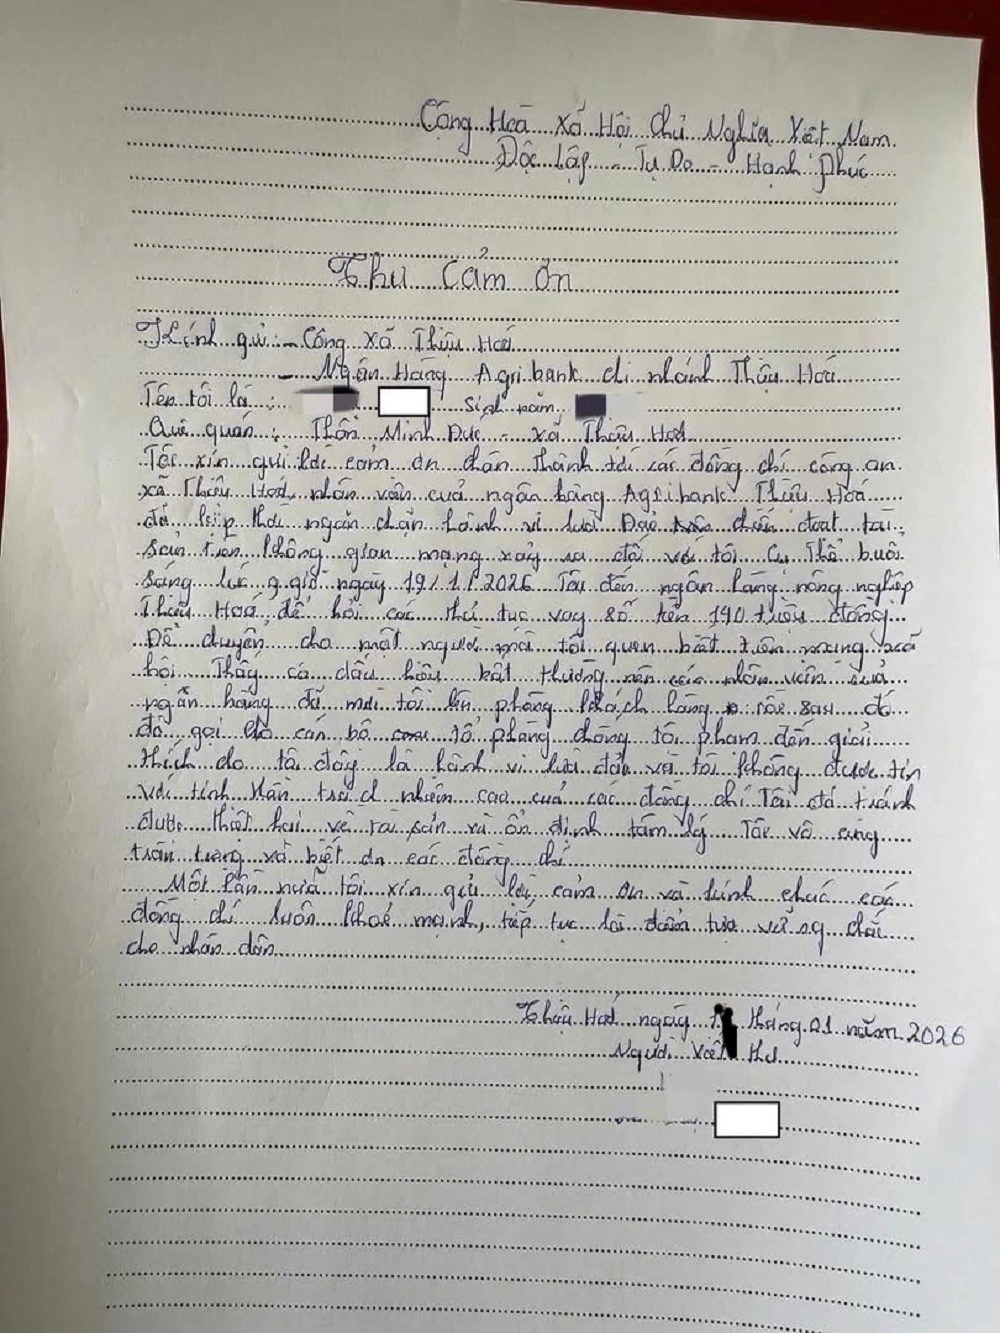 Cộng Hoà Xã Hội Chủ Nghĩa Việt Nam
Độc Lập - Tự Do - Hạnh Phúc
Thư Cảm Ơn
Kính gửi: - Công xã Thiệu Hoá
- Ngân Hàng Agribank chi nhánh Thiệu Hoá
Tên tôi là: Sinh năm
Quê quán: Thôn Minh Đức - xã Thiệu Hoá
Tôi xin gửi lời cảm ơn chân thành tới các đồng chí công an
xã Thiệu Hoá, nhân viên của ngân hàng Agribank Thiệu Hoá
đã kịp thời ngăn chặn hành vi lừa Đảo chiếm đoạt tài
sản trên không gian mạng xảy ra đối với tôi Cụ Thể buổi
sáng lúc 9 giờ ngày 19/1/2026 Tôi đến ngân hàng nông nghiệp
Thiệu Hoá để hỏi các thủ tục vay số tiền 190 triệu đồng
Để chuyển cho một người mà tôi quen biết trên mạng xã
hội Thấy có dấu hiệu bất thường nên các nhân viên của
ngân hàng đã mời tôi lên phòng khách hàng rồi sau đó
đã gọi cho cán bộ tổ phòng chống tội phạm đến giải
thích cho tôi đây là hành vi lừa đảo và tôi không được tin
với tinh thần trách nhiệm cao của các đồng chí Tôi đã tránh
được thiệt hại về tài sản và ổn định tâm lý Tôi vô cùng
trân trọng và biết ơn các đồng chí
Một lần nữa tôi xin gửi lời cảm ơn và kính chúc các
đồng chí luôn khoẻ mạnh, tiếp tục là điểm tựa vững chắc
cho nhân dân
Thiệu Hoá ngày tháng 01 năm 2026
Người viết thư